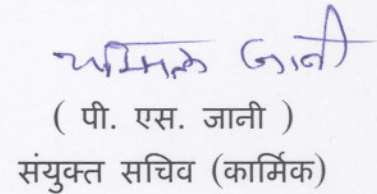 जानी
( पी. एस. जानी )
संयुक्त सचिव (कार्मिक)